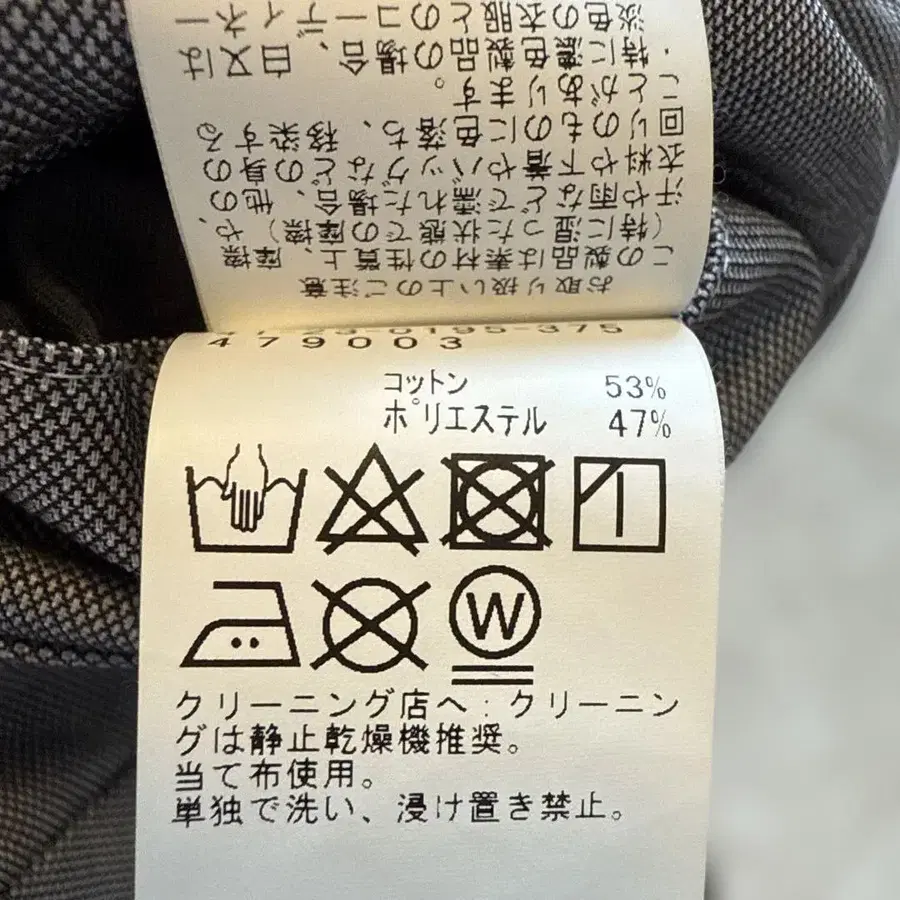 お取り扱い上のご注意
この製品は素材の性質上、摩擦
(特に湿った状態での摩擦)や、
汗や雨などで濡れた場合、他の
衣料や下着やバッグなどの身の
回りのものに色落ち、移染する
ことがあります。
・特に濃色製品の場合、白又は
淡色の衣服とのコーディネー
23-0195-375
479003
コットン 53%
ポリエステル 47%
W
クリーニング店へ:クリーニン
グは静止乾燥機推奨。
当て布使用。
単独で洗い、浸け置き禁止。